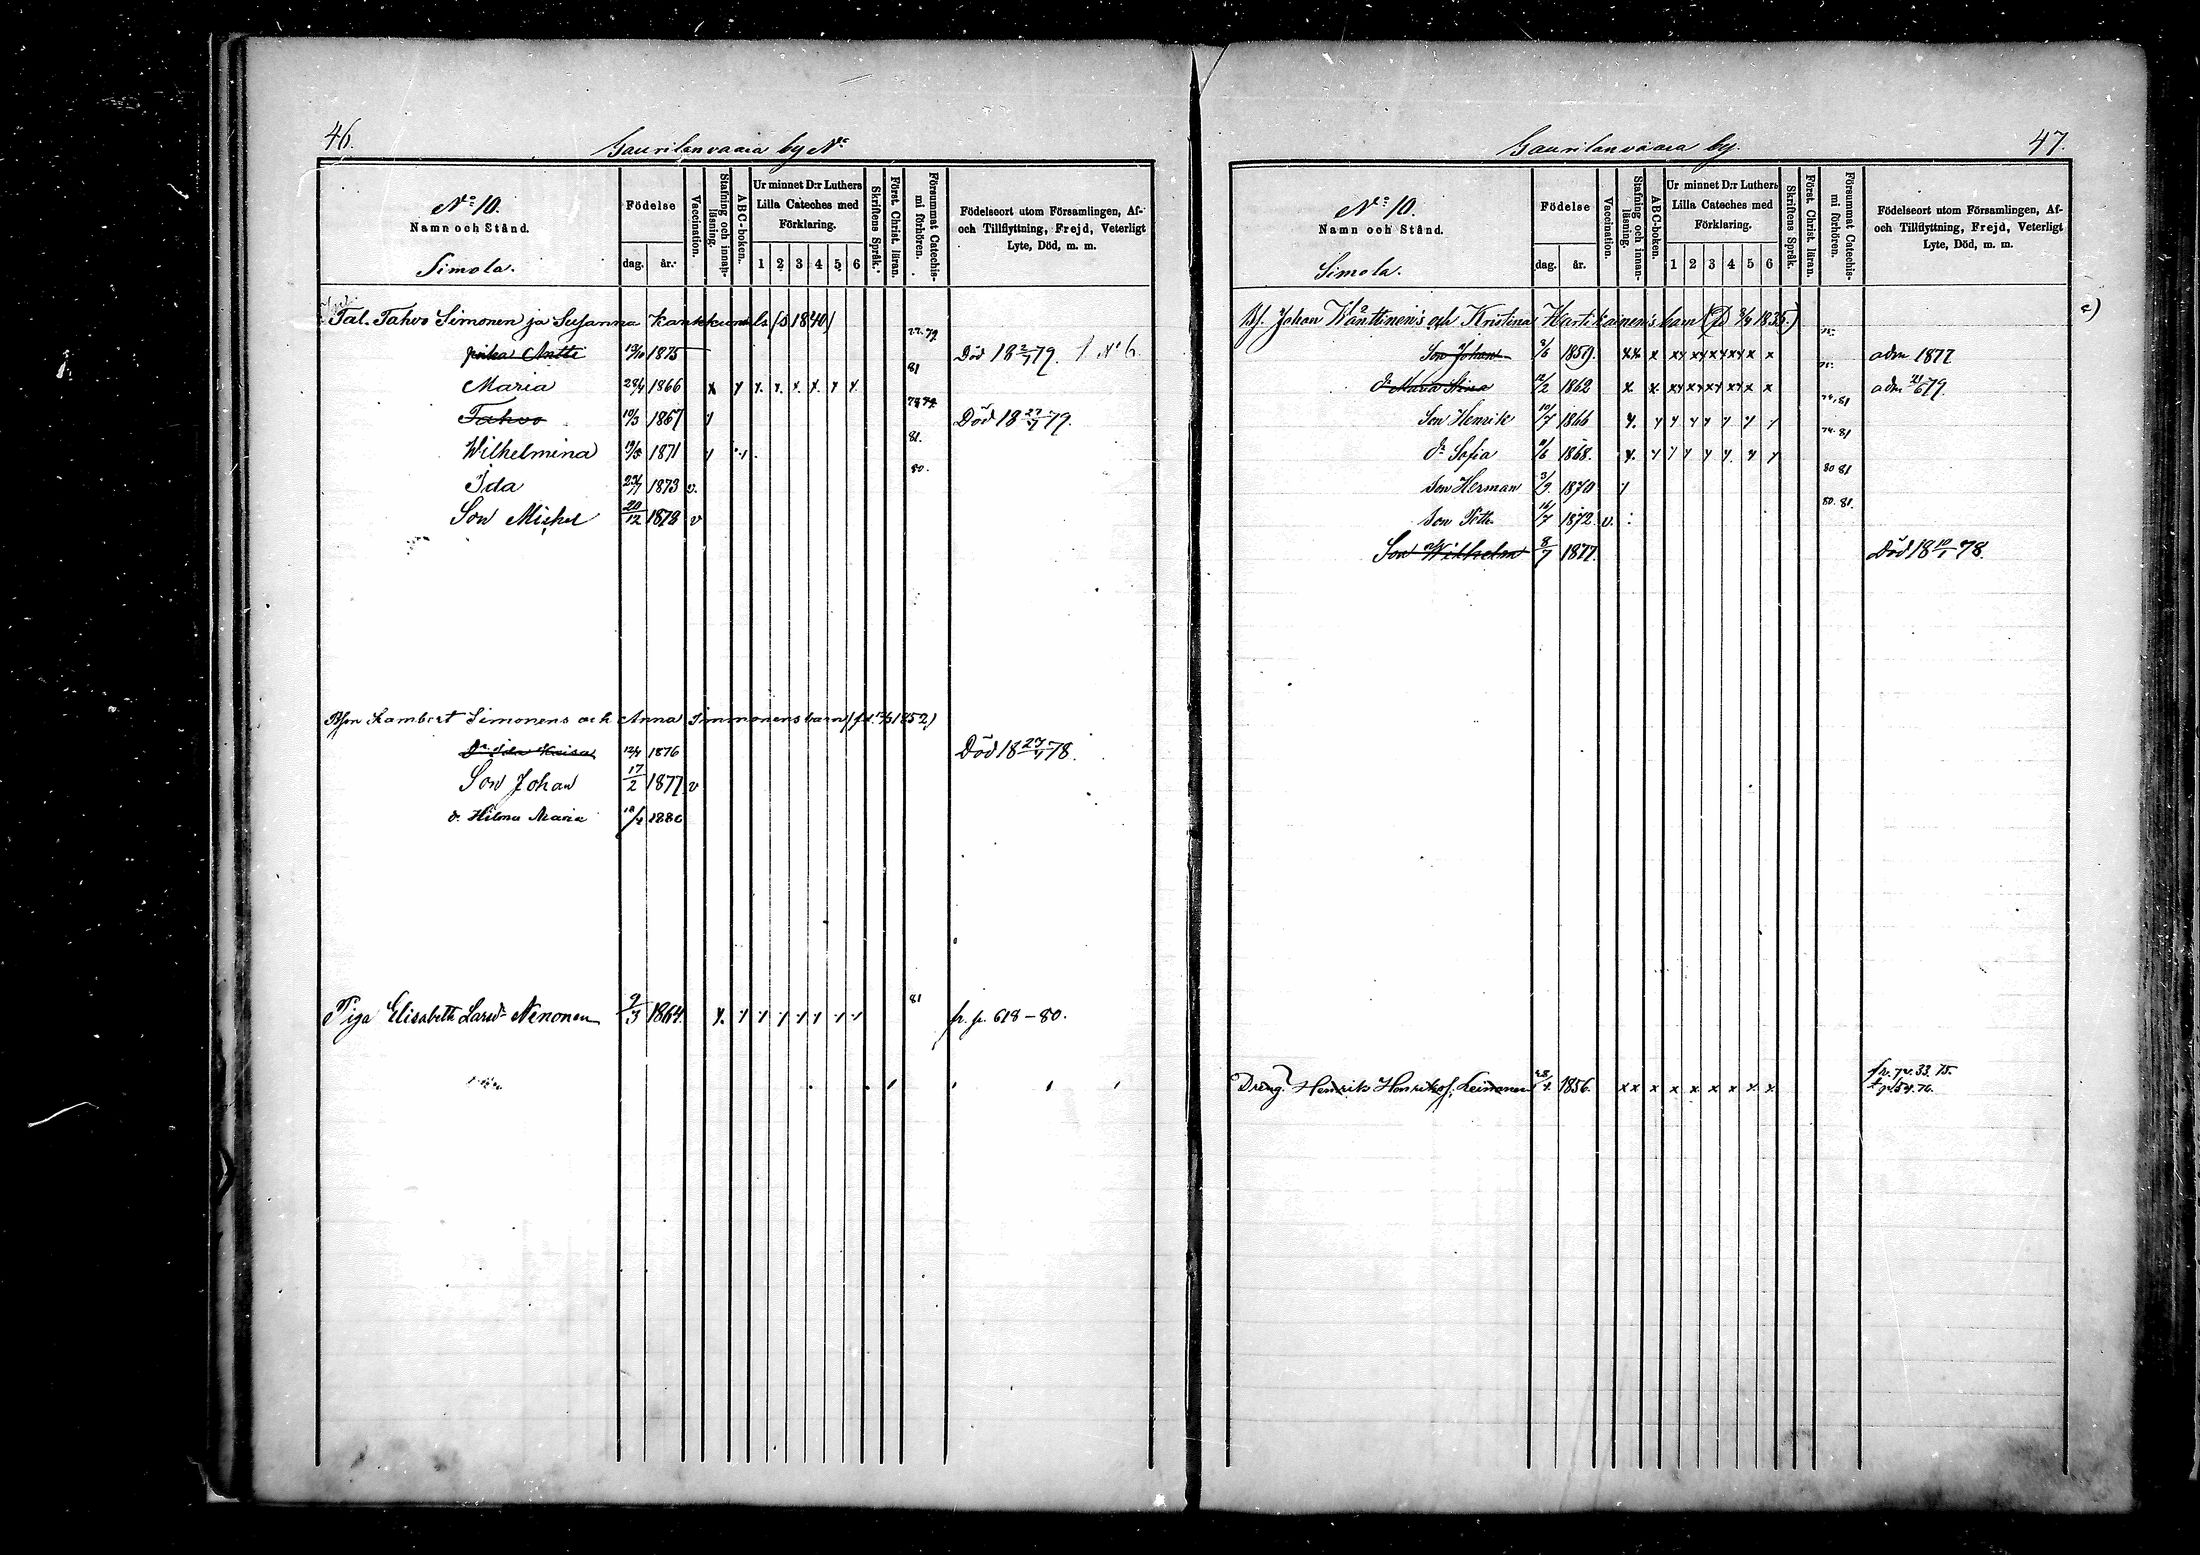 46.
Gaurilanvaara by No
No 10.
Namn och Stånd.
Simola.
Födelse
dag. år.
Vaccination.
Stafning och innanläsning.
ABC-boken.
Ur minnet D:r Luthers Lilla Cateches med Förklaring.
1 2 3 4 5 6
Skriftens Språk.
Först. Christ. läran.
Försummat Catechismi förhören.
Födelseort utom Församlingen, Af- och Tillflyttning, Frejd, Veterligt Lyte, Död, m. m.
Tal. Tahvo Simonen ja Susanna (s 1840)
poika Antti 13/10 1875 77.79 Död 18 2/7 79. No 6
Maria 28/4 1866 x x x x x x x x 81
Tahvo 10/3 1867 Död 18 27/7 79.
Wilhelmina 19/5 1871 81.
Ida 1873 v. 80.
Son Michel 20/12 1878 v
Bson Lambert Simonens och Anna Simmonens barn 1852)
Dr Ida Kaisa 12/4 1876 Död 18 27/4 78.
Son Johan 17/2 1877 v
d. Hilma Maria 1880
Piga Elisabeth Larsdr Nenonen 9/3 1864. 81 fr. p. 618-80.
47.
Gaurilanvaara by.
No 10.
Namn och Stånd.
Simola.
Födelse
dag. år.
Vaccination.
Stafning och innanläsning.
ABC-boken.
Ur minnet D:r Luthers Lilla Cateches med Förklaring.
1 2 3 4 5 6
Skriftens Språk.
Först. Christ. läran.
Försummat Catechismi förhören.
Födelseort utom Församlingen, Af- och Tillflyttning, Frejd, Veterligt Lyte, Död, m. m.
Bf. Johan Wänttinen's och Kristina Hartikainen's barn 1835.)
Son Johan 3/6 1859. xx x x x x x x x adm 1877
dr Maria Stina 12/2 1862 x x x x x x x x adm 79.
Son Henrik 10/7 1866 74,81
dr Sofia 1868. 74.81
Son Herman 3/9 1870 80 81
Son Petter 1872. v. 80.81.
Son Wilhelm 8/7 1877. Död 18 10/1 78.
Dreng. Henrik Henriksf. Leinonen 1856. xx x x x x x x x fr. p. 33. 75.
t p 54. 76.